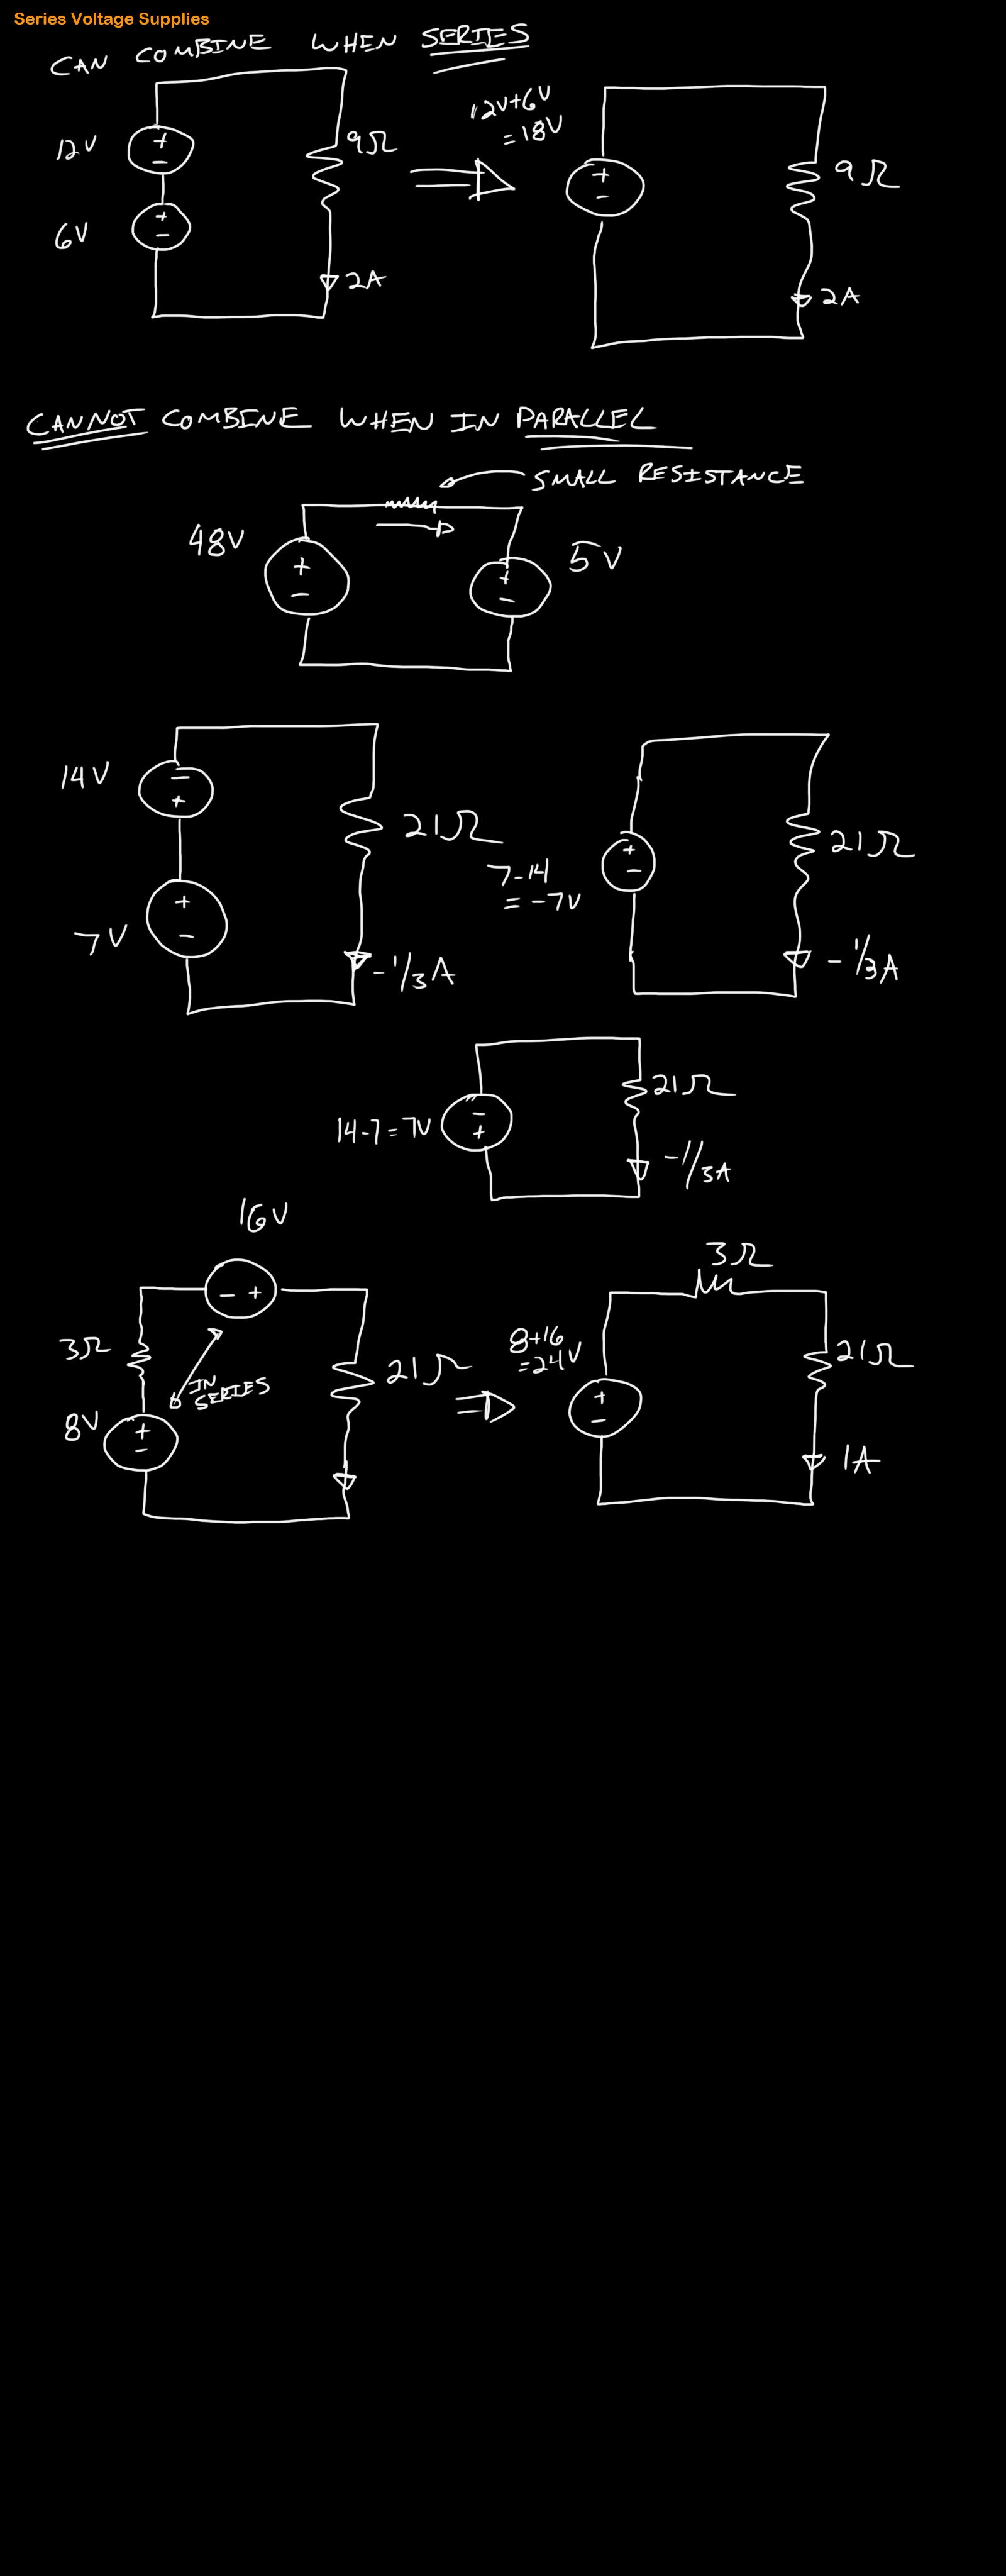 Series Voltage Supplies
CAN COMBINE WHEN SERIES
12V
+
-
9Ω
6V
+
-
2A
12V+6V
=18V
+
-
9Ω
2A
CANNOT COMBINE WHEN IN PARALLEL
SMALL RESISTANCE
48V
+
-
+
-
5V
14V
-
+
21Ω
7V
+
-
-1/3A
7-14
= -7V
+
-
21Ω
-1/3A
14-7=7V
-
+
21Ω
-1/3A
16V
- +
3Ω
IN
SERIES
8V
+
-
21Ω
8+16
=24V
+
-
3Ω
21Ω
1A